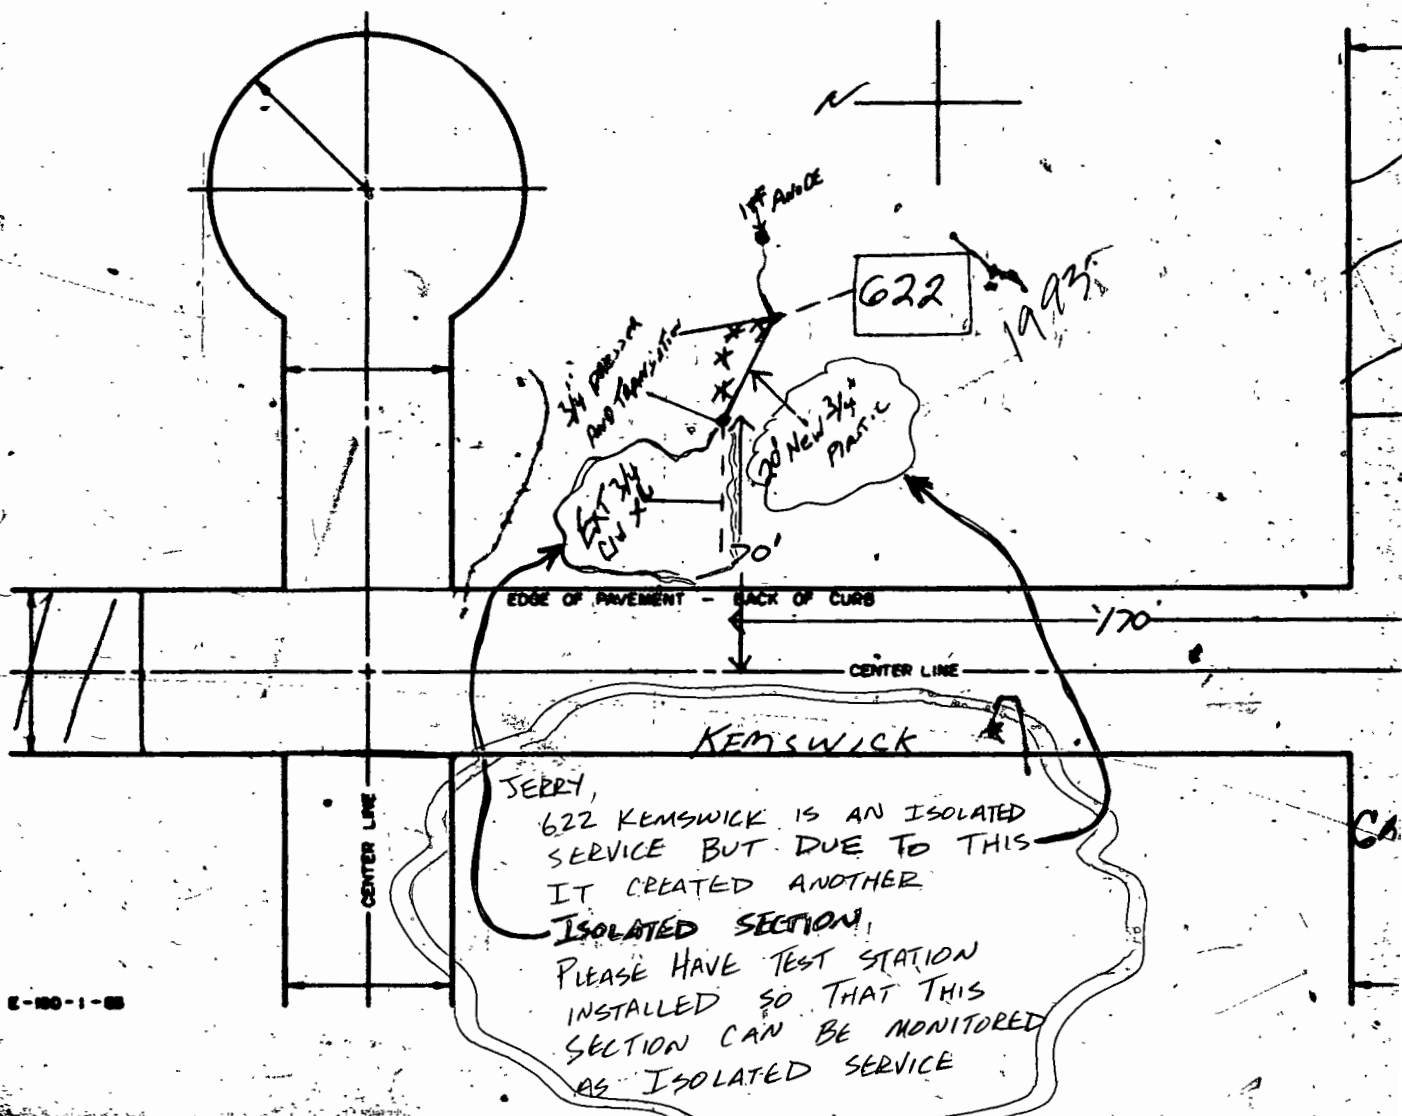 N
1# ANODE
622
1993
3/4" DRESSER
AND TRANSISTION
20' NEW 3/4"
PLASTIC
EXT 3/4
CIW
EDGE OF PAVEMENT - BACK OF CURB
170'
CENTER LINE
KEMSWICK
JERRY,
622 KEMSWICK IS AN ISOLATED
SERVICE BUT DUE TO THIS
IT CREATED ANOTHER
ISOLATED SECTION.
PLEASE HAVE TEST STATION
INSTALLED SO THAT THIS
SECTION CAN BE MONITORED
AS ISOLATED SERVICE
CENTER LINE